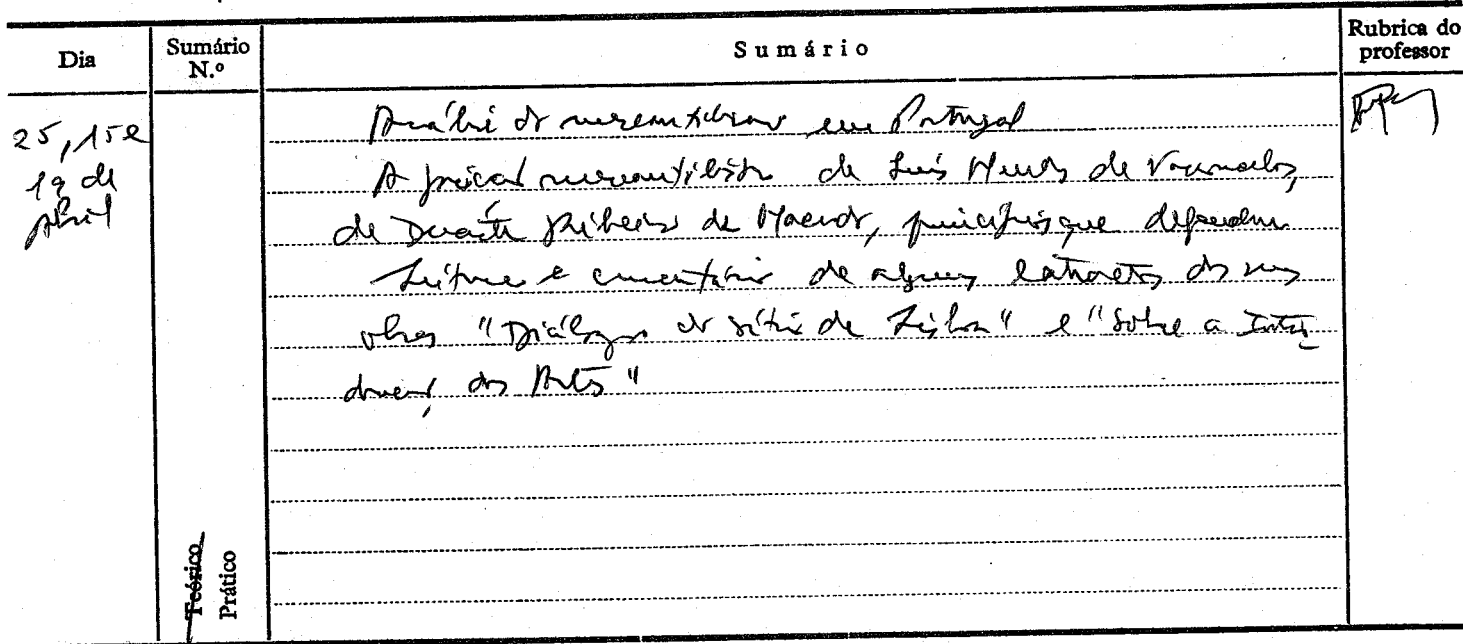 Dia
Sumário N.º
Sumário
Rubrica do professor
25, 15 e
19 de
Abril
Análise do mercantilismo em Portugal
A posição mercantilista de Luís Mendes de Vasconcelos,
de Duarte Ribeiro de Macedo, princípios que defendem
Leitura e comentário de alguns extractos das suas
obras "Diálogos do sítio de Lisboa" e "Sobre a Intro
dução das Artes"
Teórico
Prático